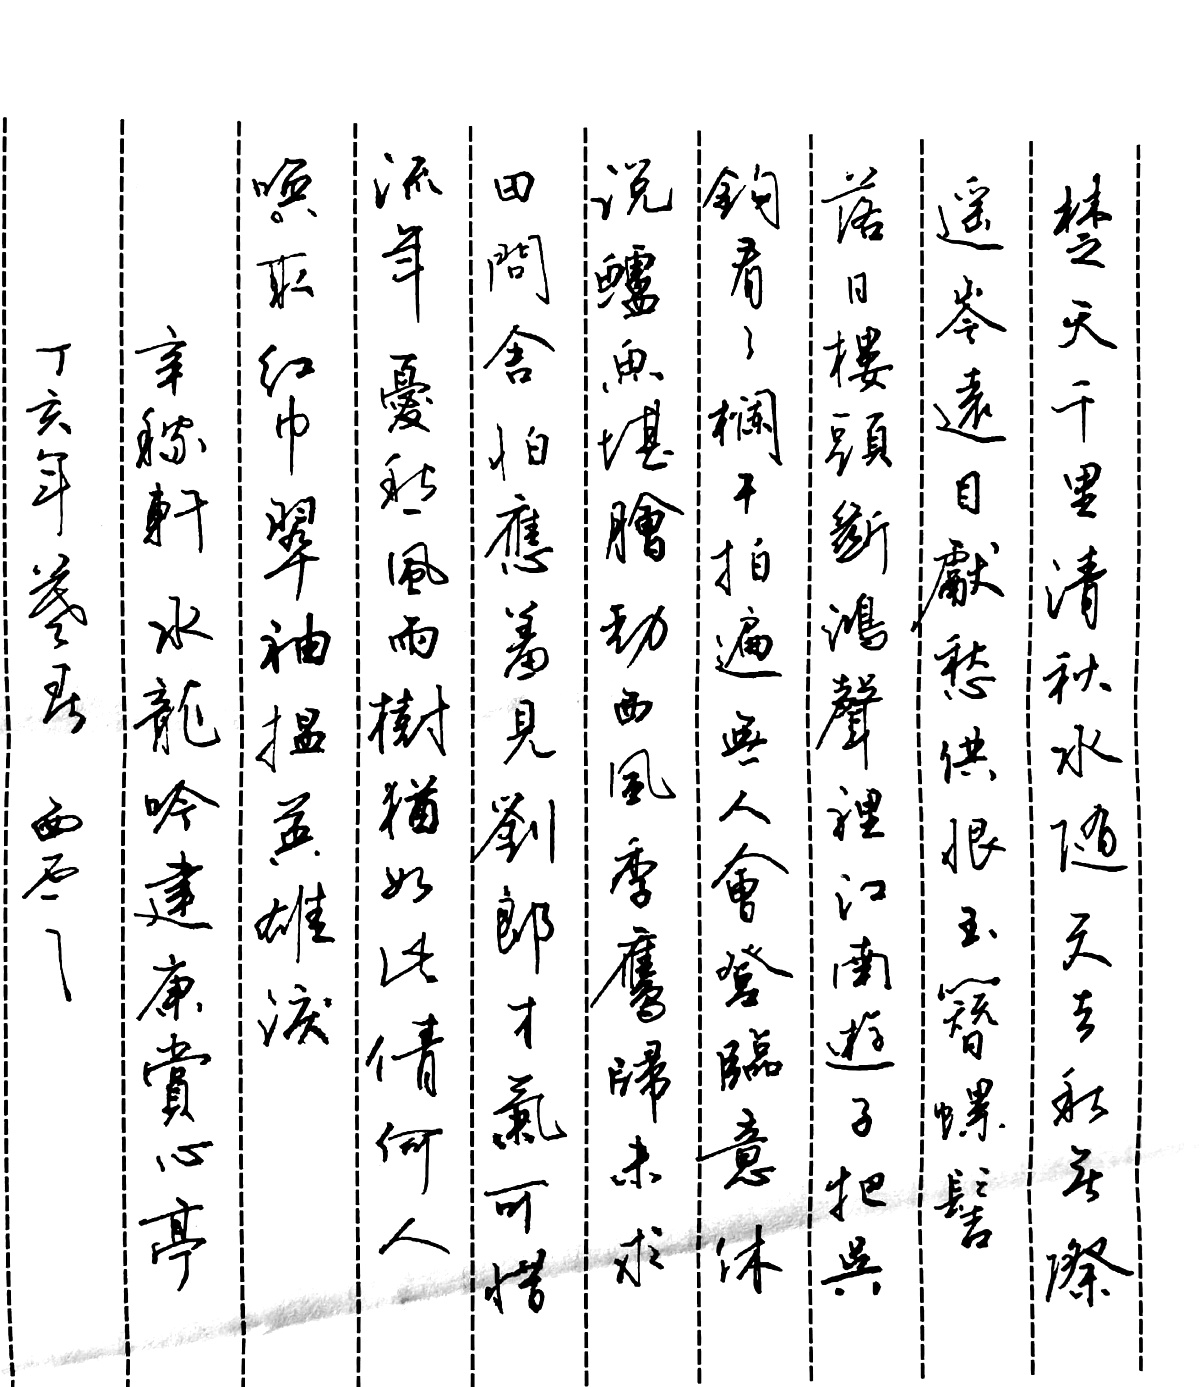 楚天千里清秋水随天去秋无際
遥岑遠目獻愁供恨玉簪螺髻
落日樓頭斷鴻聲裡江南遊子把吳
鉤看了欄干拍遍無人會登臨意休
说鱸魚堪膾動西風季鷹歸未求
田問舍怕應羞見劉郎才氣可惜
流年憂愁風雨樹猶如此倩何人
喚取紅巾翠袖揾英雄淚
辛稼軒水龍吟建康賞心亭
丁亥年暮春 西